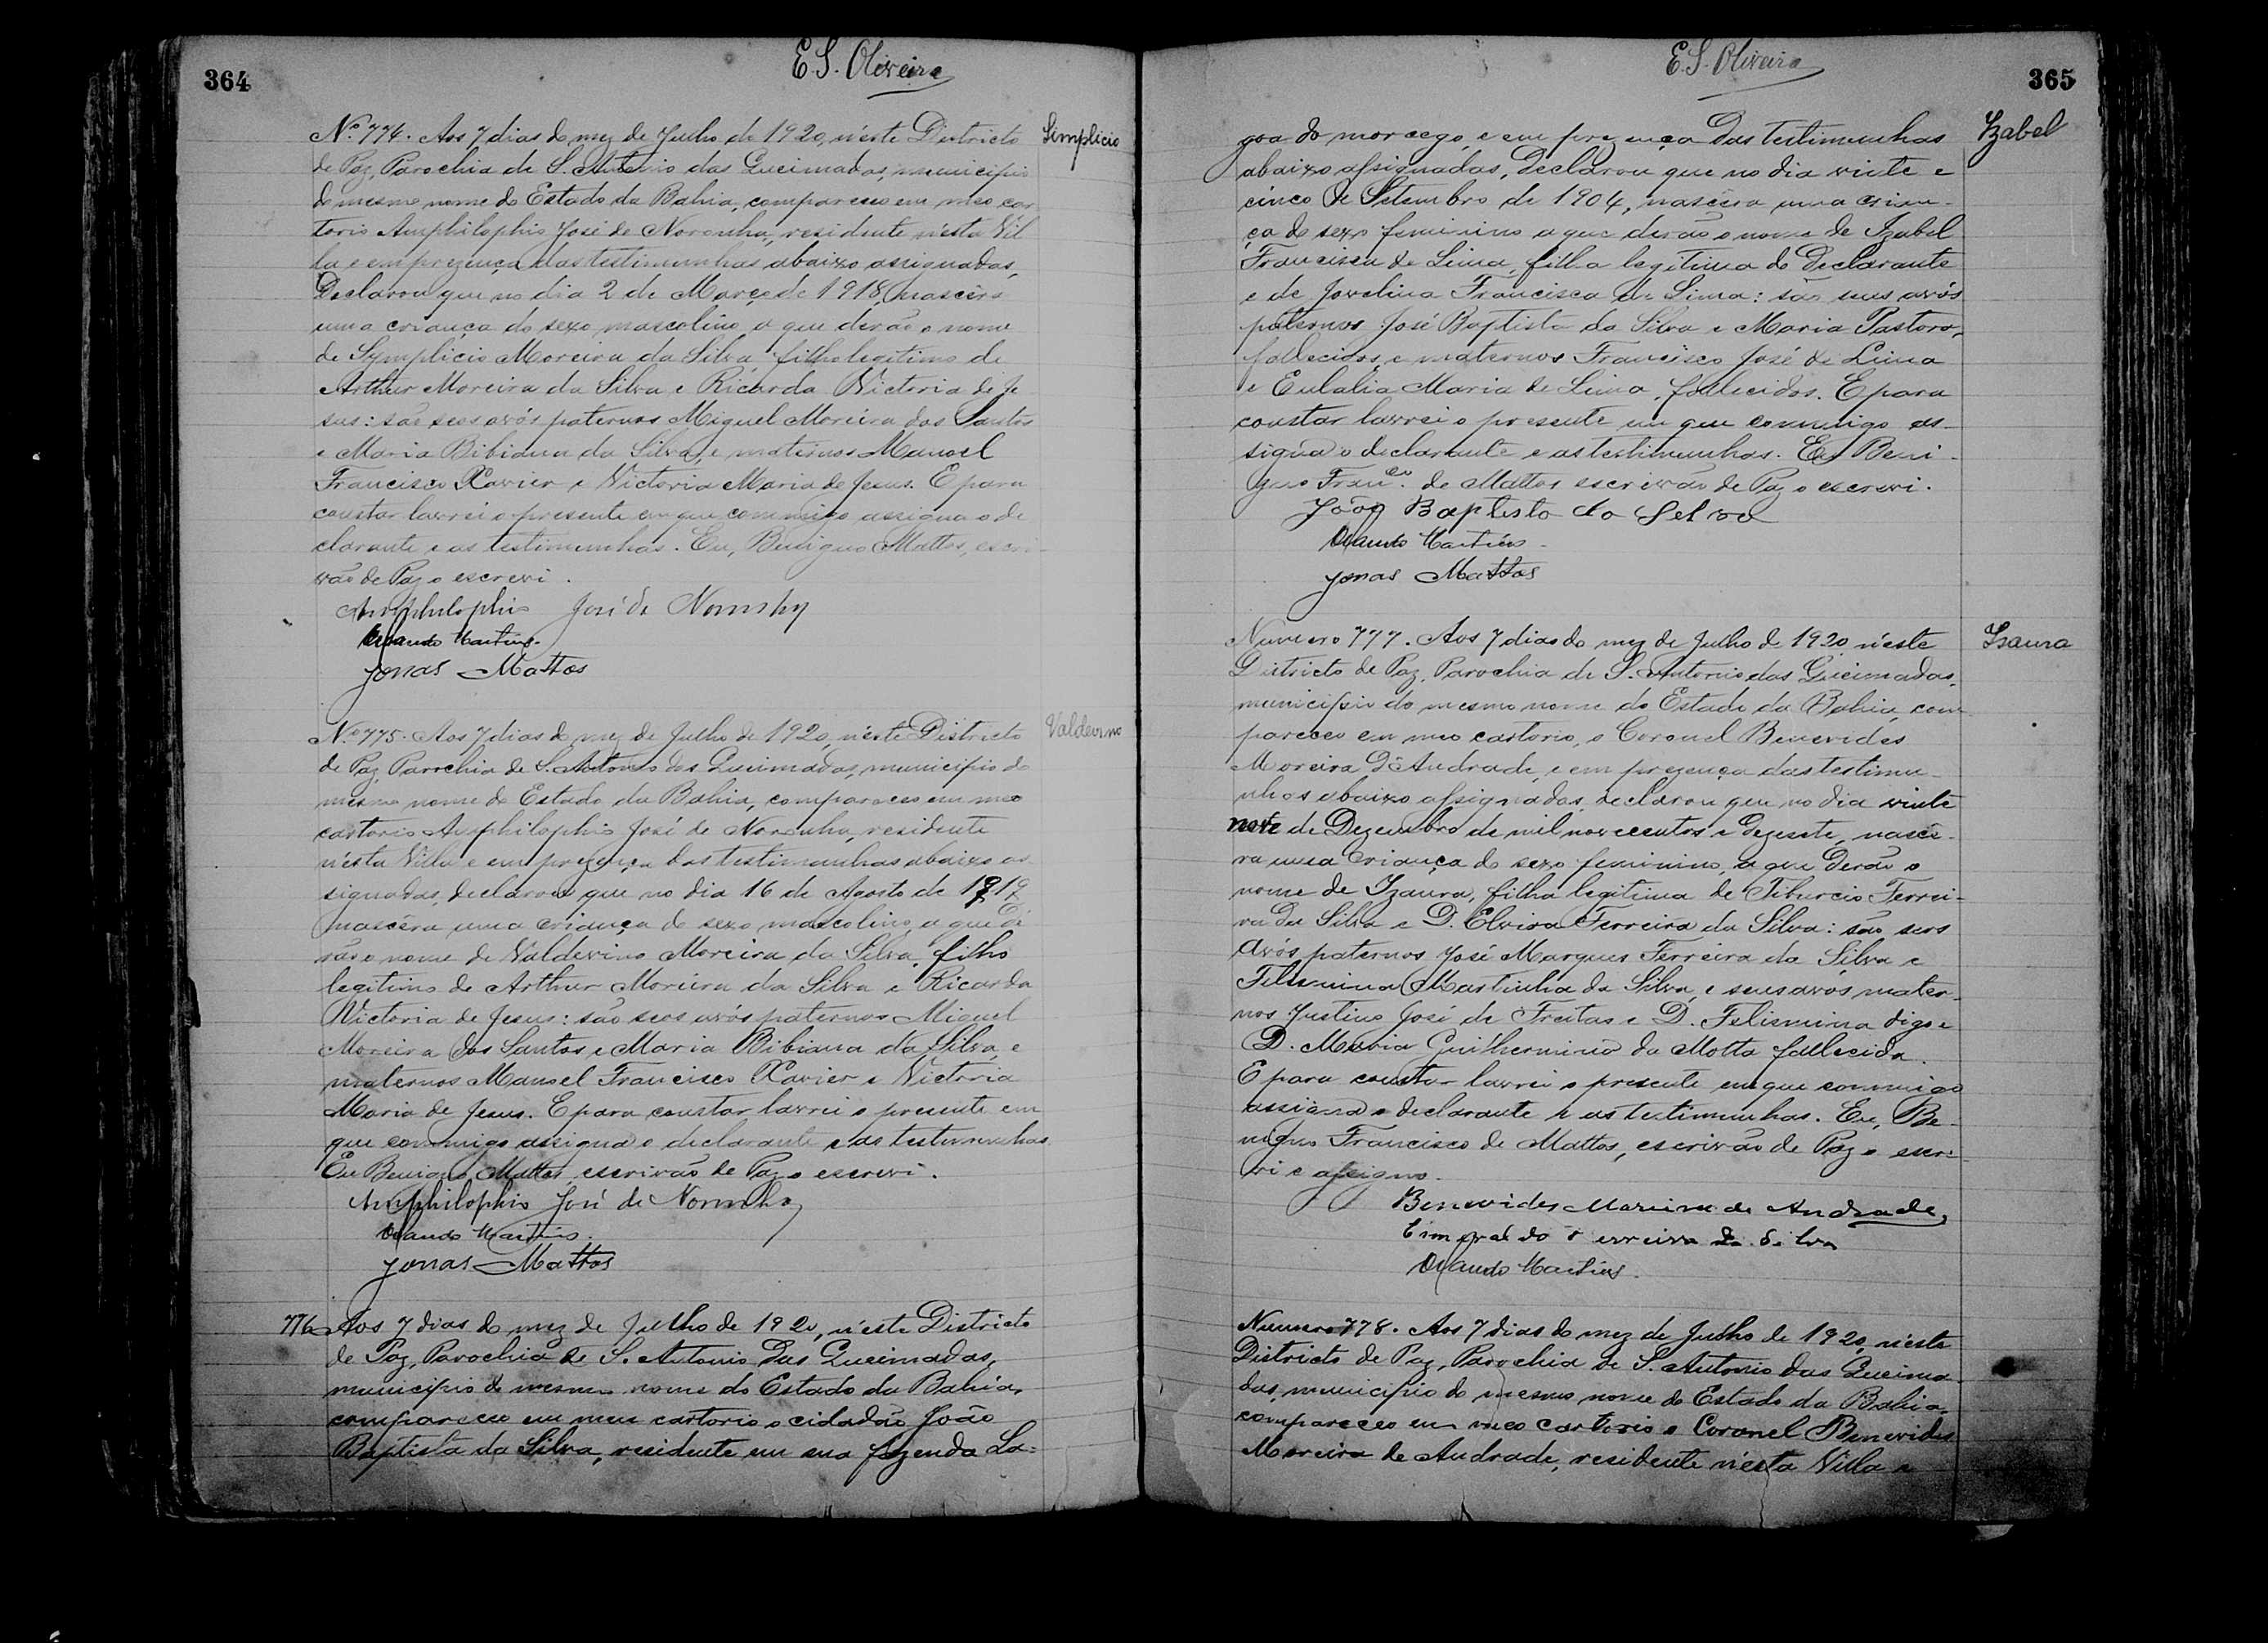 364
E. S. Oliveira
Nº 774. Aos 7 dias do mez de Julho de 1920, n'este Districto
Simplicio
de Paz, Parochia de S. Antonio das Queimadas, municipio
do mesmo nome do Estado da Bahia, compareceu em meo car
torio Amphilophio José de Noronha, residente n'esta Vil
la e em prezença das testimunhas abaixo assignadas,
Declarou que no dia 2 de Março de 1918, nascêra
uma criança do sexo mascolino, a que derão o nome
de Symplicio Moreira da Silva, filho legitimo de
Arthur Moreira da Silva e Ricarda Victoria de Je
sus: são seos avós paternos Miguel Moreira dos Santos
e Maria Bibiana da Silva, e maternos Manoel
Francisco Xavier e Victoria Maria de Jesus. E para
constar lavrei o presente em que commigo assigna o de
clarante e as testimunhas. Eu, Benigno Mattos, escri
vão de Paz o escrevi.
Amphilophio José de Noronha
Orlando Martins.
Jonas Mattos
Nº 775. Aos 7 dias do mez de Julho de 1920, n'este Districto
Valdevino
de Paz, Parochia de S. Antonio das Queimadas, municipio do
mesmo nome do Estado da Bahia, compareceu em meo
cartorio Amphilophio José de Noronha, residente
n'esta Villa e em prezença das testimunhas abaixo as
signadas, declarou que no dia 16 de Agosto de 1919
nascêra uma criança do sexo mascolino, a que de
rão o nome de Valdevino Moreira da Silva, filho
legitimo de Arthur Moreira da Silva e Ricarda
Victoria de Jesus: são seos avós paternos Miguel
Moreira dos Santos e Maria Bibiana da Silva, e
maternos Manoel Francisco Xavier e Victoria
Maria de Jesus. E para constar lavrei o presente em
que commigo assigna o declarante e as testimunhas.
Eu Benigno Mattos, escrivão de Paz o escrevi.
Amphilophio José de Noronha
Orlando Martins.
Jonas Mattos
776 Aos 7 dias do mez de Julho de 1920, n'este Districto
de Paz, Parochia de S. Antonio das Queimadas,
municipio do mesmo nome do Estado da Bahia,
compareceu em meu cartorio o cidadão João
Baptista da Silva, residente em sua fazenda La=
E. S. Oliveira
365
goa do morcego, e em prezença das testimunhas
Izabel
abaixo assignadas, Declarou que no dia vinte e
cinco de Setembro de 1904, nascêra uma crian-
ça do sexo feminino a que derão o nome de Izabel
Francisca de Lima, filha legitima do Declarante
e de Jovelina Francisca de Lima: são seus avós
paternos José Baptista da Silva e Maria Pastora,
fallecidos, e maternos Francisco José de Lima
e Eulalia Maria de Lima, fallecidos. E para
constar lavrei o presente em que commigo as-
signa o declarante e as testimunhas. Eu Beni-
gno Franco. de Mattos escrivão de Paz o escrevi.
João Baptista da Selva
Orlando Martins
Jonas Mattos
Numero 777. Aos 7 dias do mez de Julho de 1920 n'este
Izaura
Districto de Paz, Parochia de S. Antonio das Queimadas,
municipio do mesmo nome do Estado da Bahia, com
pareceo em meo cartorio, o Coronel Benevides
Moreira d'Andrade, e em prezença das testimu-
nhas abaixo assignadas, declarou que no dia vinte
nove de Dezembro de mil novecentos e dezesete, nascê-
ra uma criança do sexo feminino, a que derão o
nome de Izaura, filha legitima de Tiburcio Ferrei-
ra da Silva e D. Elvira Ferreira da Silva: são seos
avós paternos José Marques Ferreira da Silva e
Felismina Martinha da Silva, e seus avós mater-
nos Justino José de Freitas e D. Felismina digo e
D. Maria Guilhermina da Motta fallecida.
E para constar lavrei o presente em que commigo
assigna o declarante e as testimunhas. Eu, Be-
nigno Francisco de Mattos, escrivão de Paz o escre
vi e assigno.
Benevides Moreira de Andrade,
Ferreira da Silva
Orlando Martins.
Numero 778. Aos 7 dias do mez de Julho de 1920, n'este
Districto de Paz, Parochia de S. Antonio das Queima
das, municipio do mesmo nome do Estado da Bahia,
compareceo em meo cartorio o Coronel Benevides
Moreira de Andrade, residente n'esta Villa e